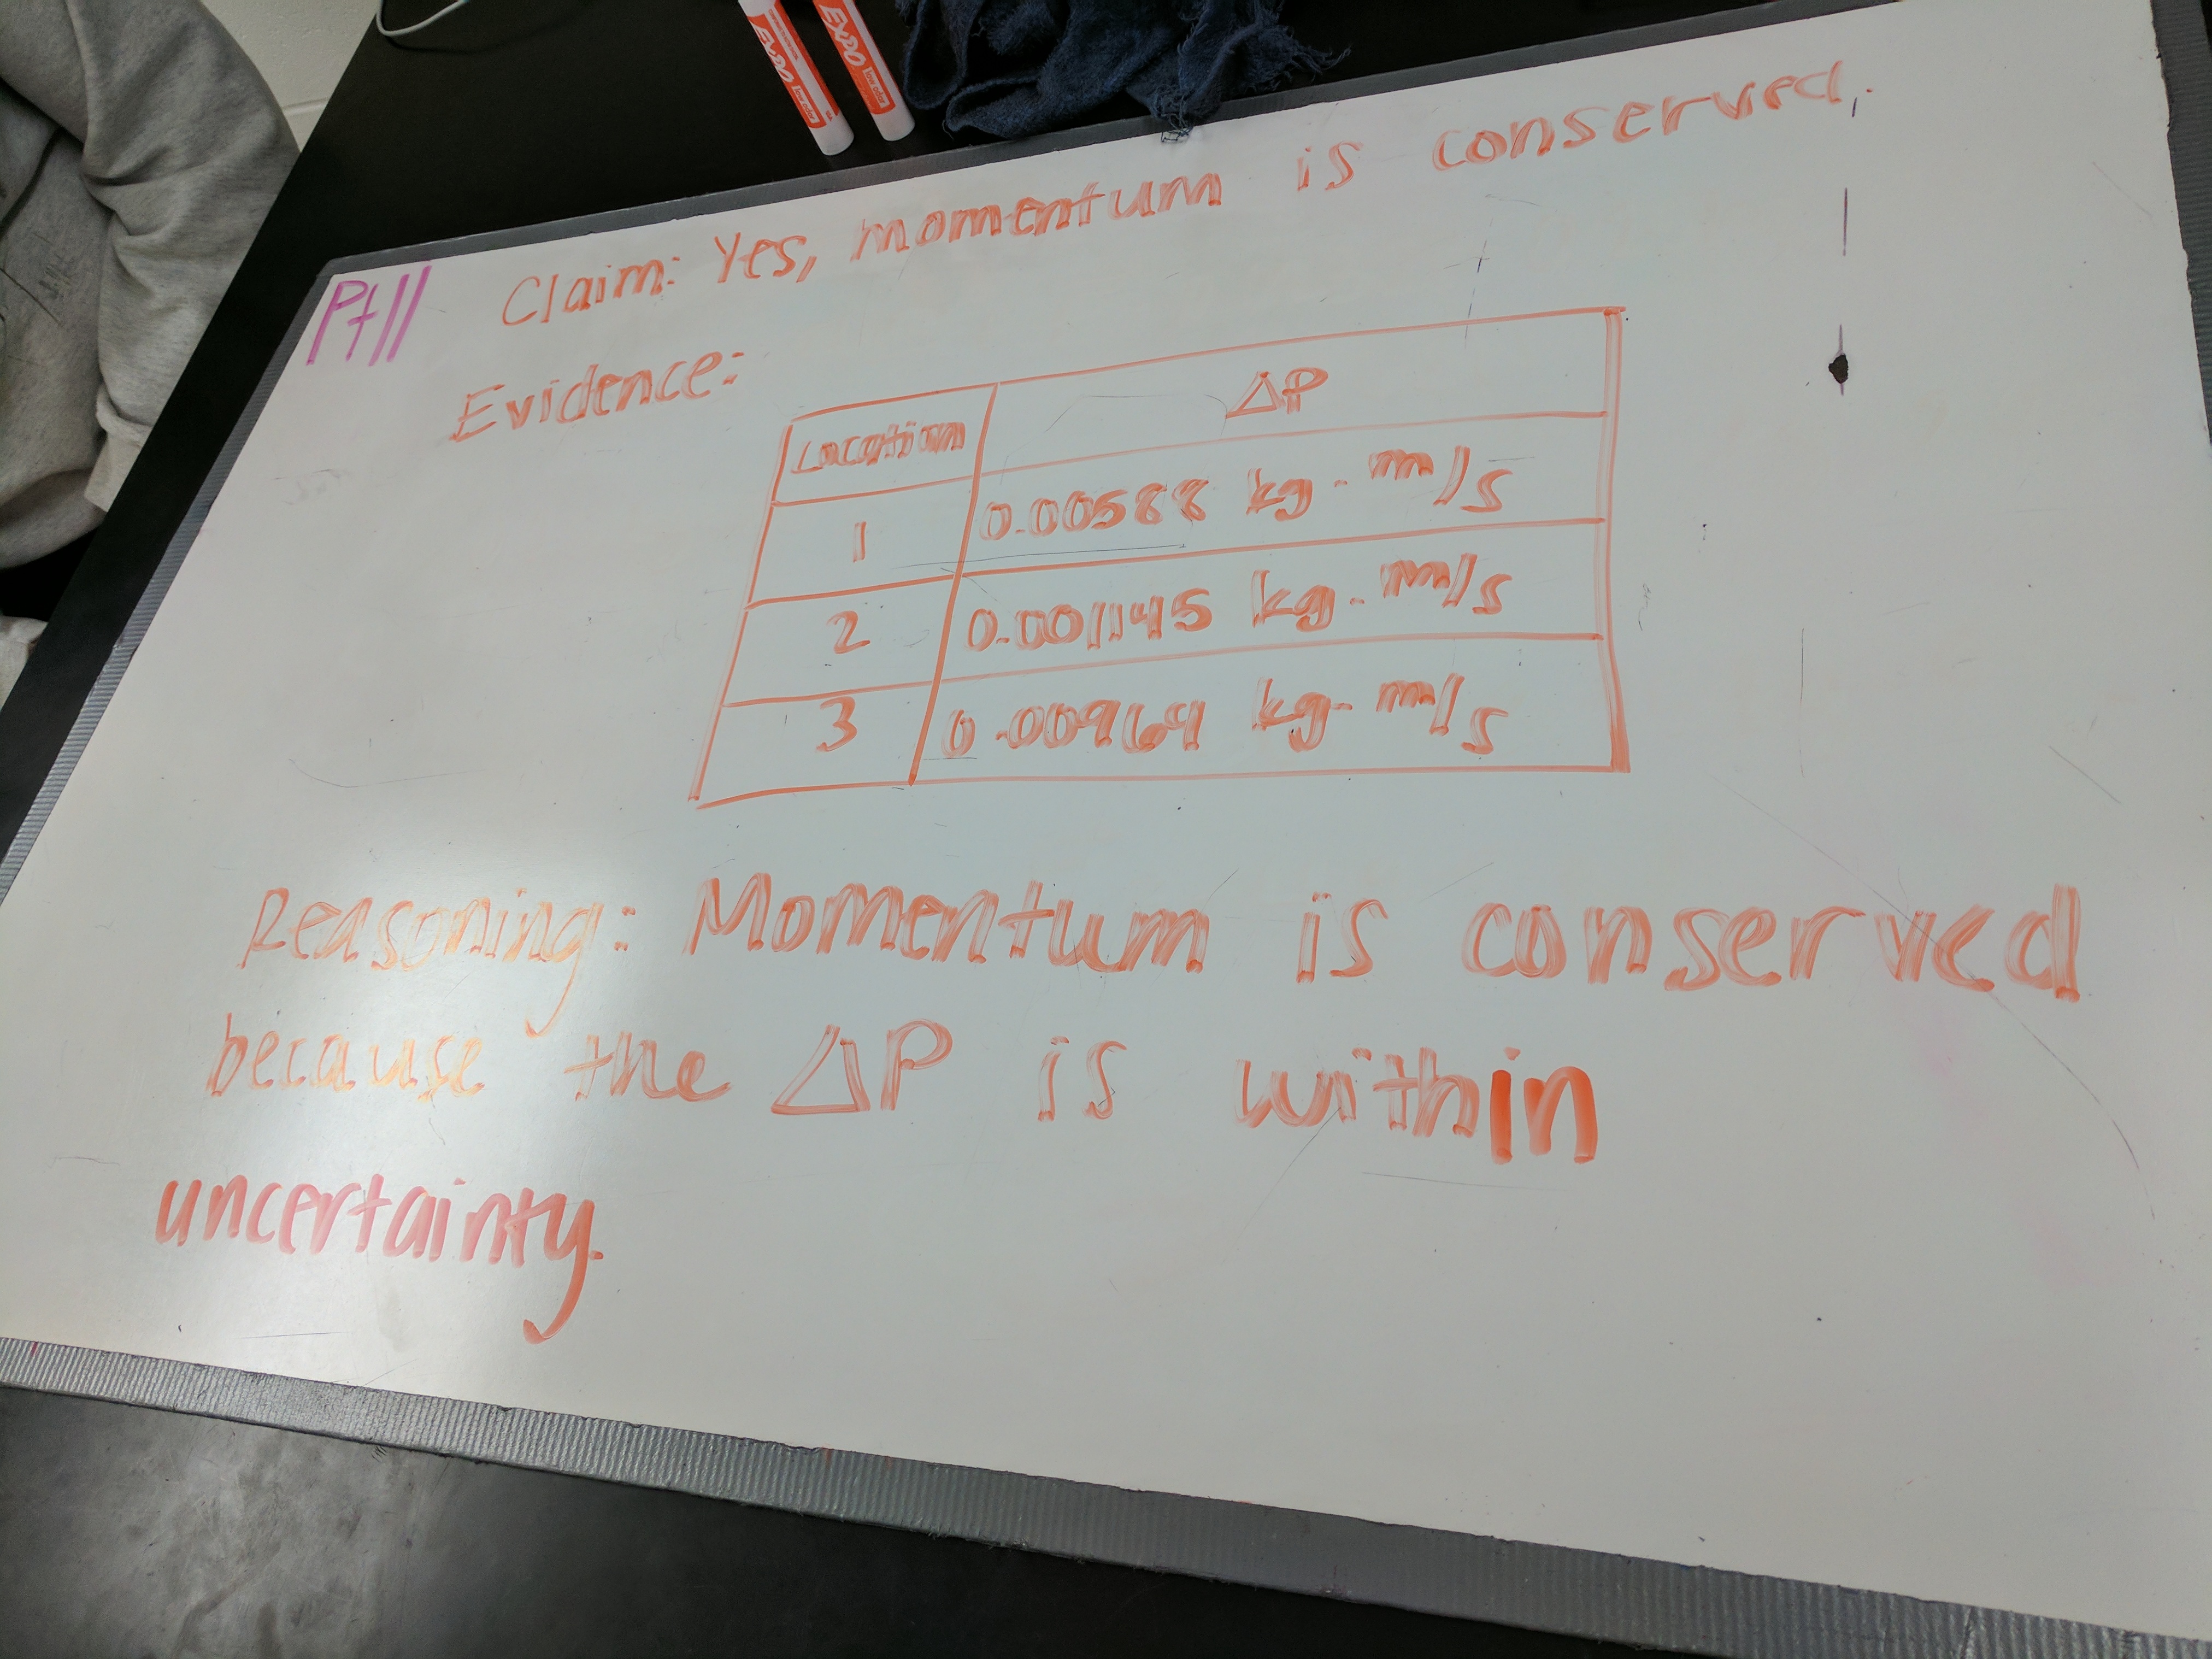 EXPO low odor
EXPO low odor
Pt II Claim: Yes, momentum is conserved.
Evidence:
Location ΔP
1 0.00588 kg·m/s
2 0.001145 kg·m/s
3 0.00964 kg·m/s
Reasoning: Momentum is conserved
because the ΔP is within
uncertainty.